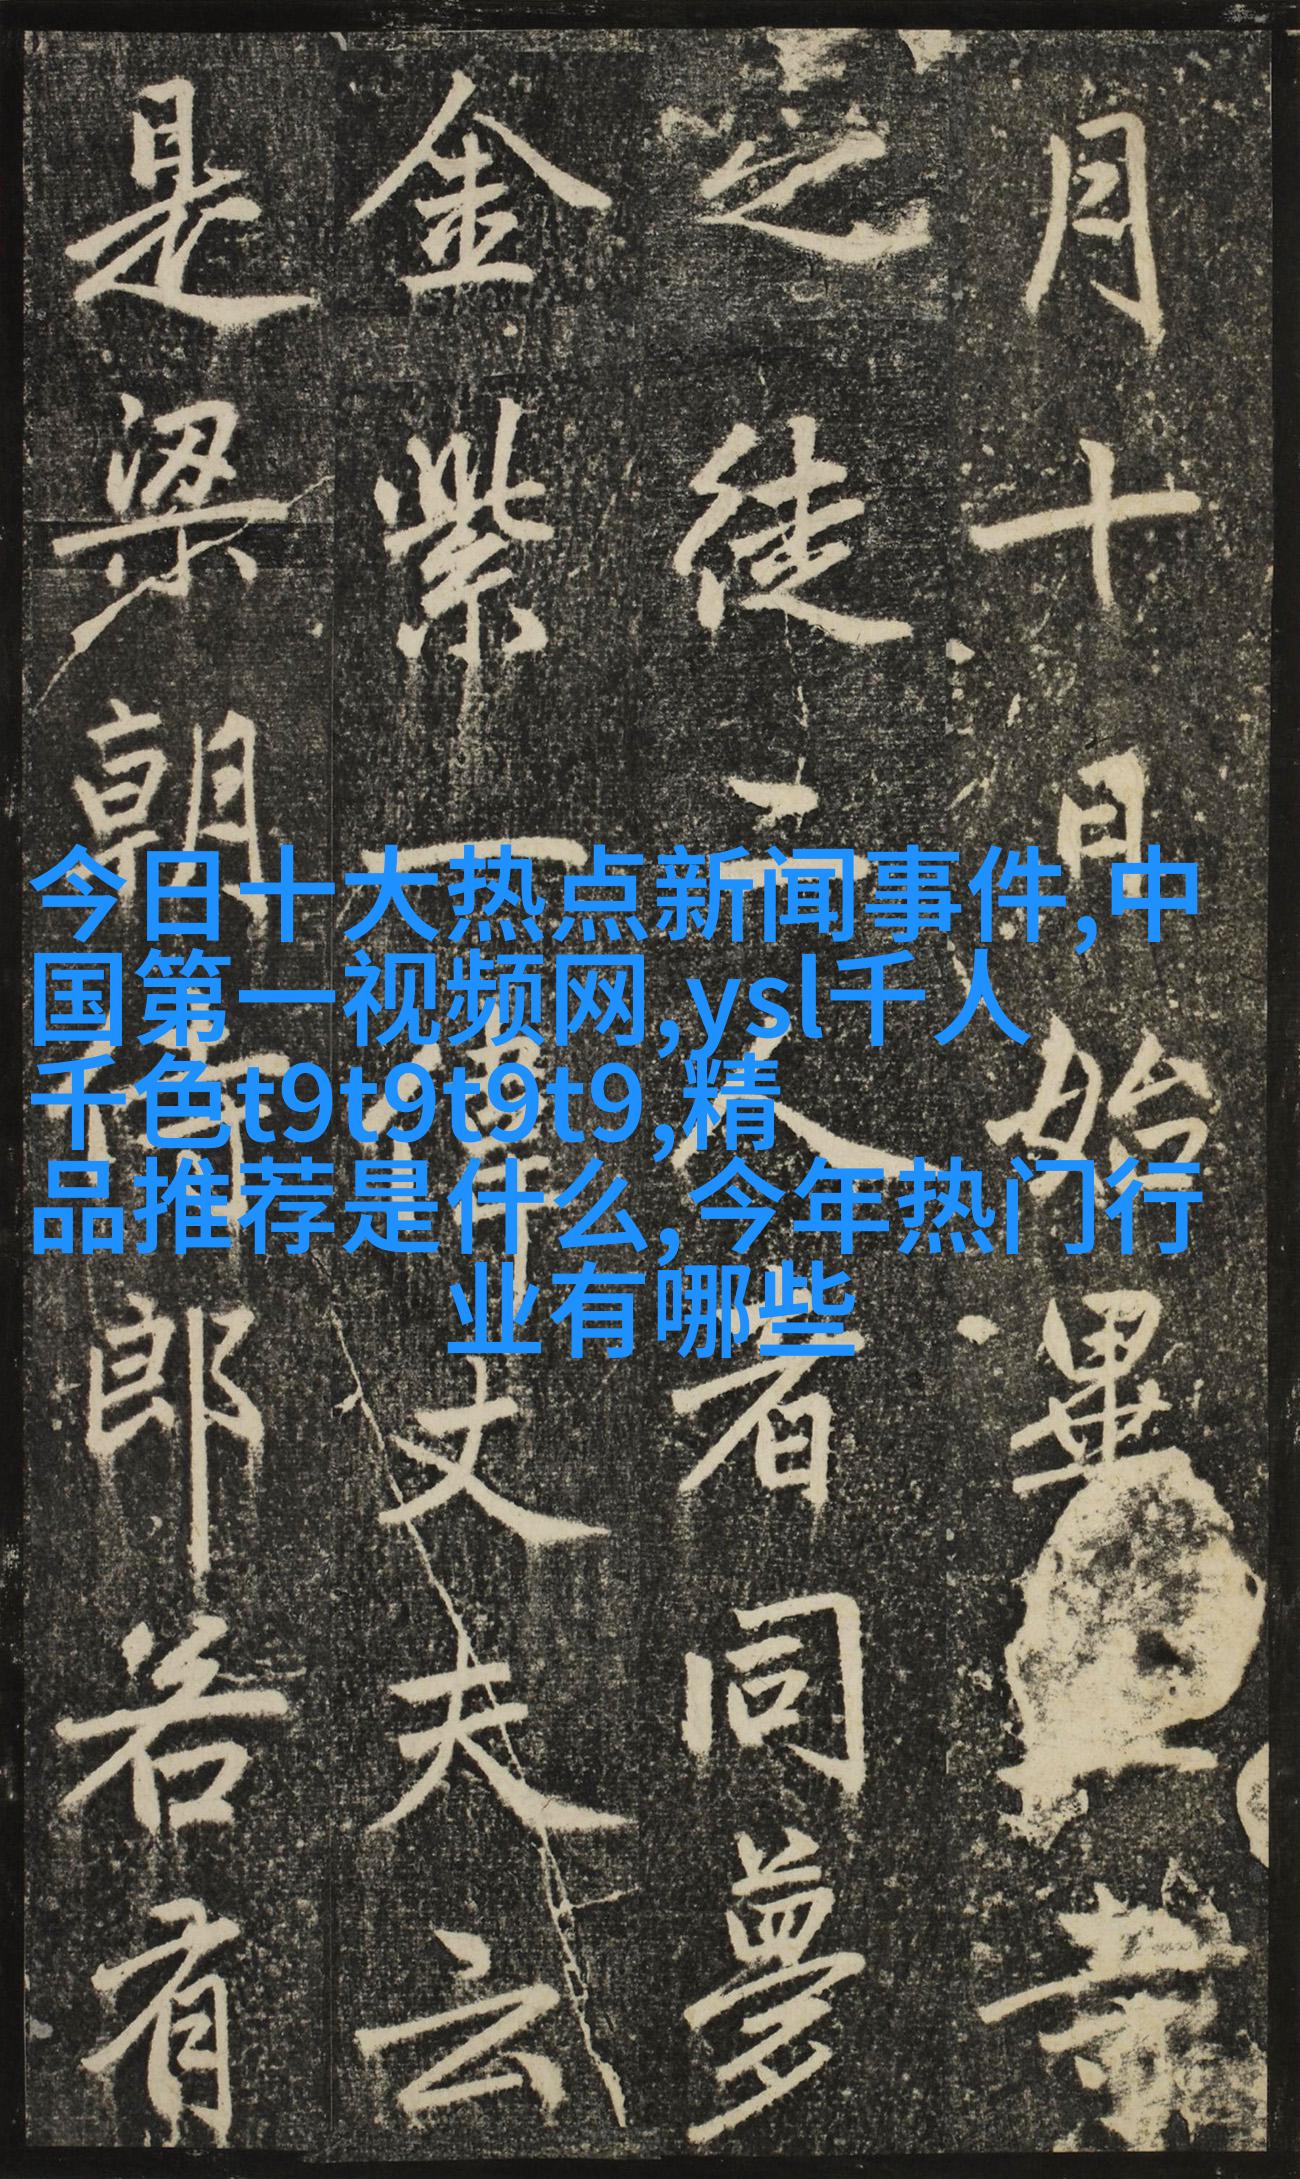 月十日始畢業
之徒二人者同夢
金紫一偉丈夫云
是梁朝郎若有
今日十大热点新闻事件,中
国第一视频网,ysl千人
千色t9t9t9t9,精
品推荐是什么,今年热门行
业有哪些